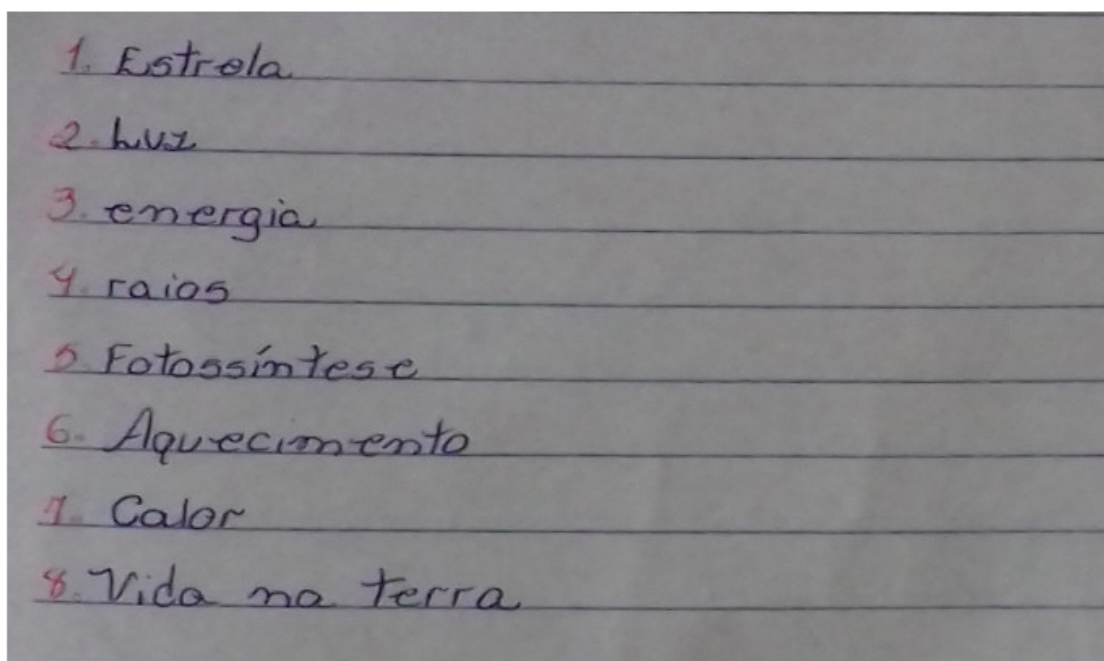 1. Estrela
2. Luz
3. energia
4. raios
5. Fotossíntese
6. Aquecimento
7. Calor
8. Vida na terra